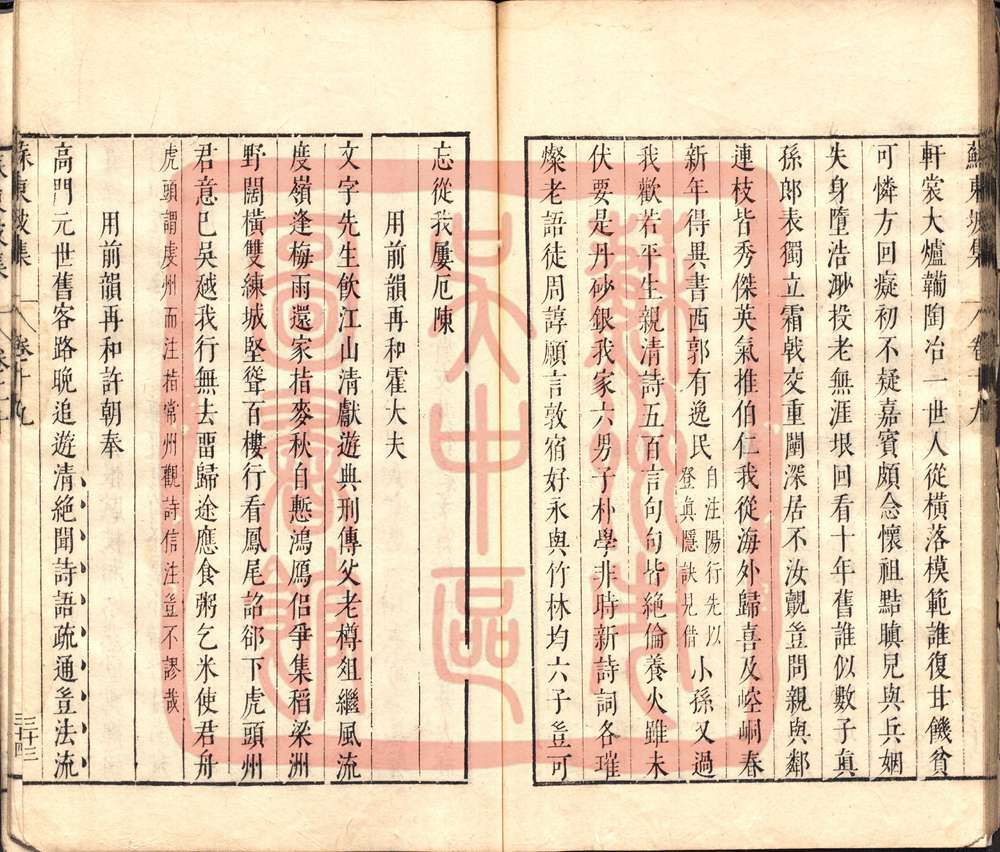 蘇東坡集 卷十九
軒裳大爐韛陶冶一世人從橫落模範誰復甘饑貧
可憐方回癡初不疑嘉賓頗念懷祖黠瞋兒與兵姻
失身墮浩渺投老無涯垠回看十年舊誰似數子真
孫郎表獨立霜戟交重闉深居不汝覿豈問親與鄰
連枝皆秀傑英氣推伯仁我從海外歸喜及崆峒春
新年得異書西郭有逸民自注陽行先以登眞隱訣見借小孫又過
我歡若平生親清詩五百言句句皆絶倫養火雖未
伏要是丹砂銀我家六男子朴學非時新詩詞各璀
燦老語徒周諄願言敦宿好永與竹林均六子豈可
忘從我屢厄陳
用前韻再和霍大夫
文字先生飲江山清獻遊典刑傳父老樽俎繼風流
度嶺逢梅雨還家指麥秋自慙鴻鴈侣爭集稻粱洲
野闊橫雙練城堅聳百樓行看鳳尾詔郤下虎頭州
君意已吳越我行無去畱歸途應食粥乞米使君舟
虎頭謂虔州而注指常州觀詩信注豈不謬哉
用前韻再和許朝奉
高門元世舊客路晩追遊清絶聞詩語疏通豈法流
蘇東坡集 卷十九